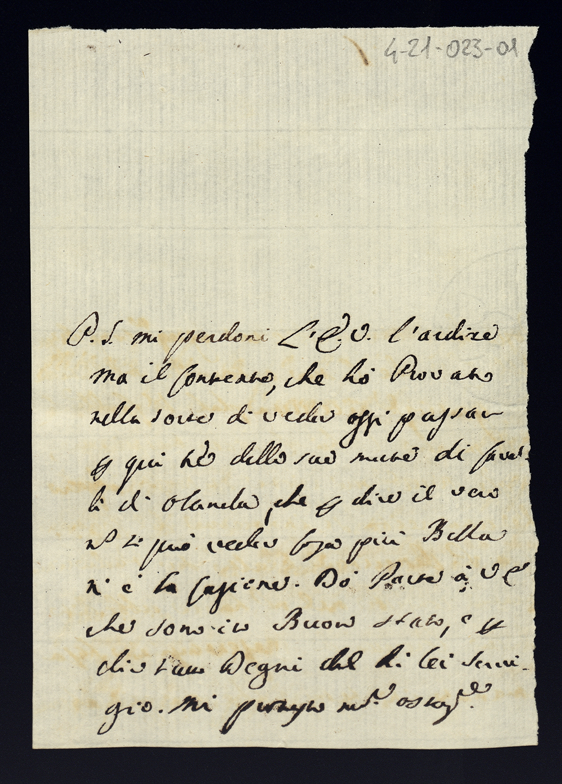 4-21-023-01
P. S. mi perdoni L'E. V. l'ardire
ma il contento, che hò Provato
nella sorte di veder oggi passar
qui delle sue mute di Caval-
li di olanda, che dire il vero
si può veder cosa più Bella
ne è la cagione. Dò Parte à V E
che sono in Buon stato, e
degni del di lei servi-
gio. Mi